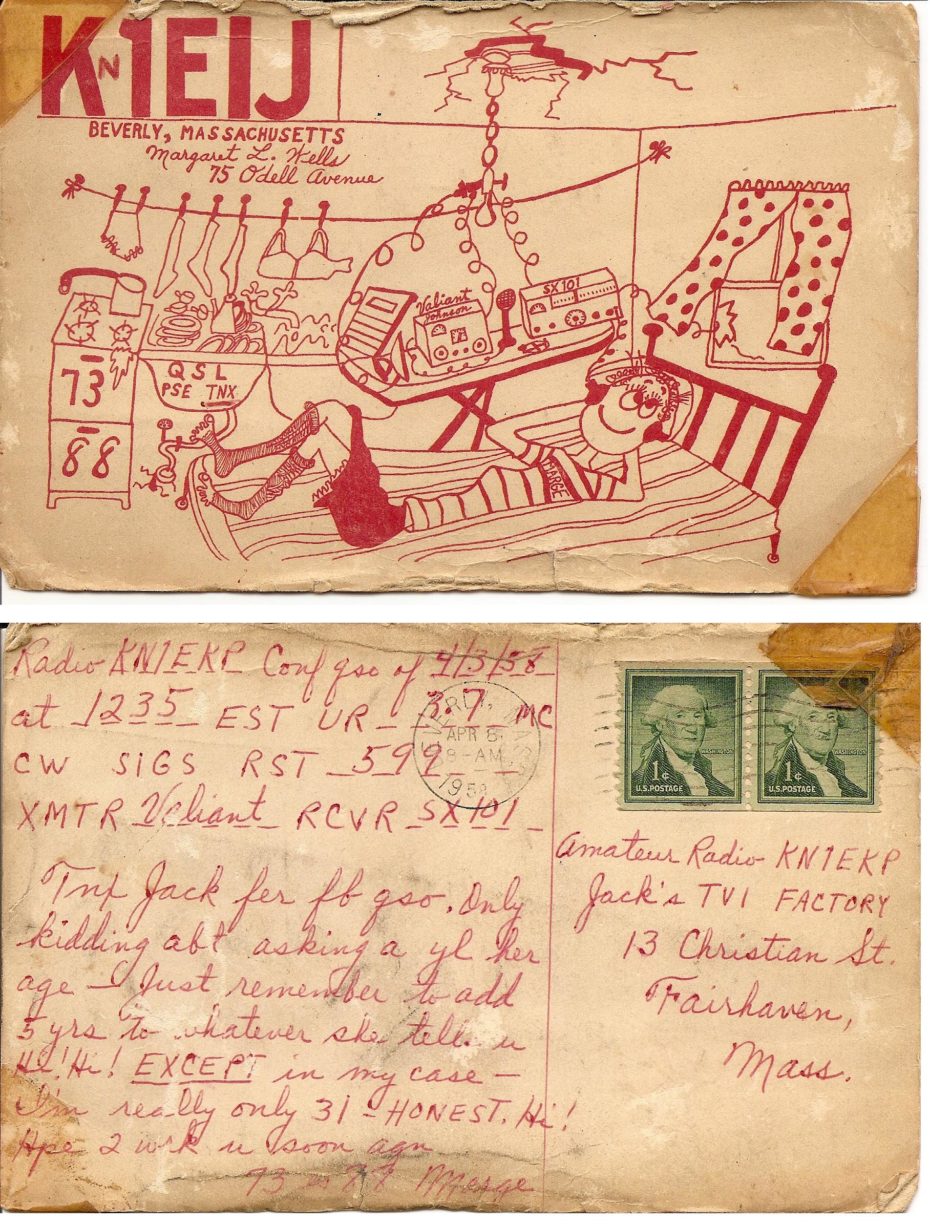 KN1EIJ
BEVERLY, MASSACHUSETTS
Margaret L. Wells
75 Odell Avenue
Valiant
Johnson
SX101
QSL
PSE TNX
73
88
MARGE
Radio KN1EKP Conf qso of 4/3/58
at 1235 EST UR 3.7 MC
CW SIGS RST 599
XMTR Valiant RCVR SX101
Tnx Jack fer fb qso. Only
kidding abt asking a yl her
age – Just remember to add
5 yrs to whatever she tells u
Hi! Hi! EXCEPT in my case –
I'm really only 31 – HONEST. Hi!
Hpe 2 wrk u soon agn
73 Marge
BEVERLY, MASS.
APR 8
8-AM
1958
WASHINGTON
1¢
U.S. POSTAGE
WASHINGTON
1¢
U.S. POSTAGE
Amateur Radio KN1EKP
Jack's TVI FACTORY
13 Christian St.
Fairhaven,
Mass.